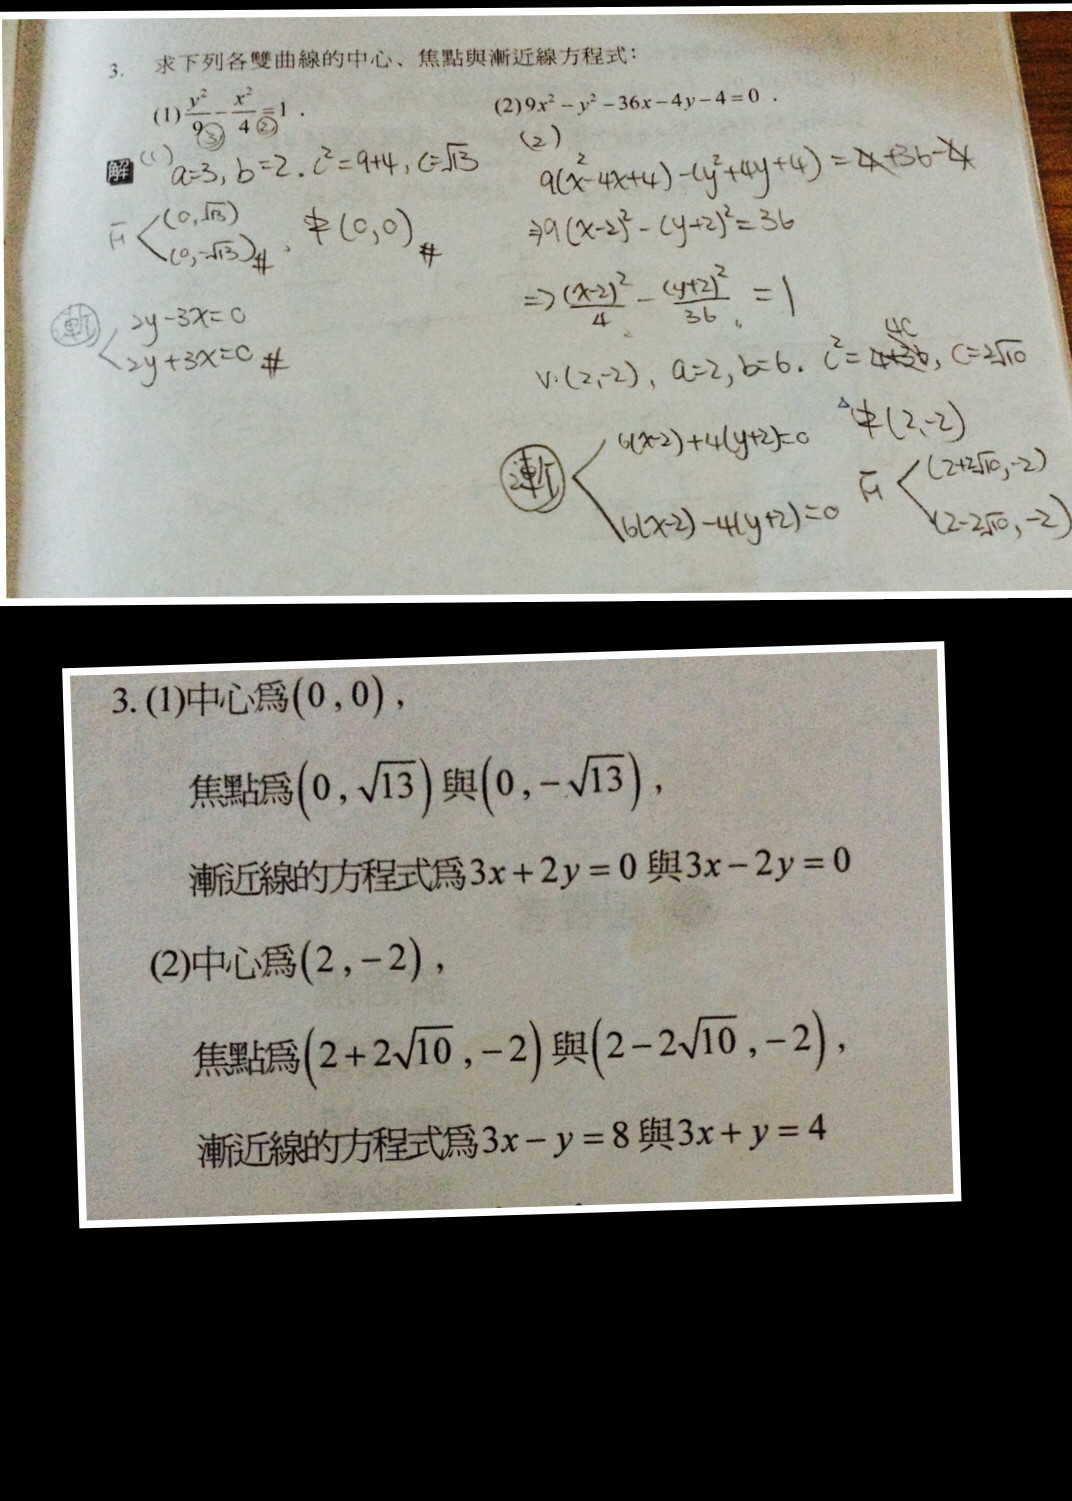 3. 求下列各雙曲線的中心、焦點與漸近線方程式：
(1) y²/9 - x²/4 = 1．
③ ②
(2) 9x² - y² - 36x - 4y - 4 = 0．
解 (1) a=3, b=2. c²=9+4, c=√13
(0,√13)
(0,-√13)#, 中(0,0)#
漸 2y-3x=0
2y+3x=0 #
(2)
9(x²-4x+4)-(y²+4y+4)=4+36-4
⇒9(x-2)²-(y+2)²=36
⇒(x-2)²/4 - (y+2)²/36 = 1
V:(2,-2), a=2, b=6. c²=4+36, c=2√10
40
中(2,-2)
漸 6(x-2)+4(y+2)=0
6(x-2)-4(y+2)=0
(2+2√10,-2)
(2-2√10,-2)
3. (1)中心為(0,0)，
焦點為(0,√13)與(0,-√13)，
漸近線的方程式為3x+2y=0與3x-2y=0
(2)中心為(2,-2)，
焦點為(2+2√10,-2)與(2-2√10,-2)，
漸近線的方程式為3x-y=8與3x+y=4